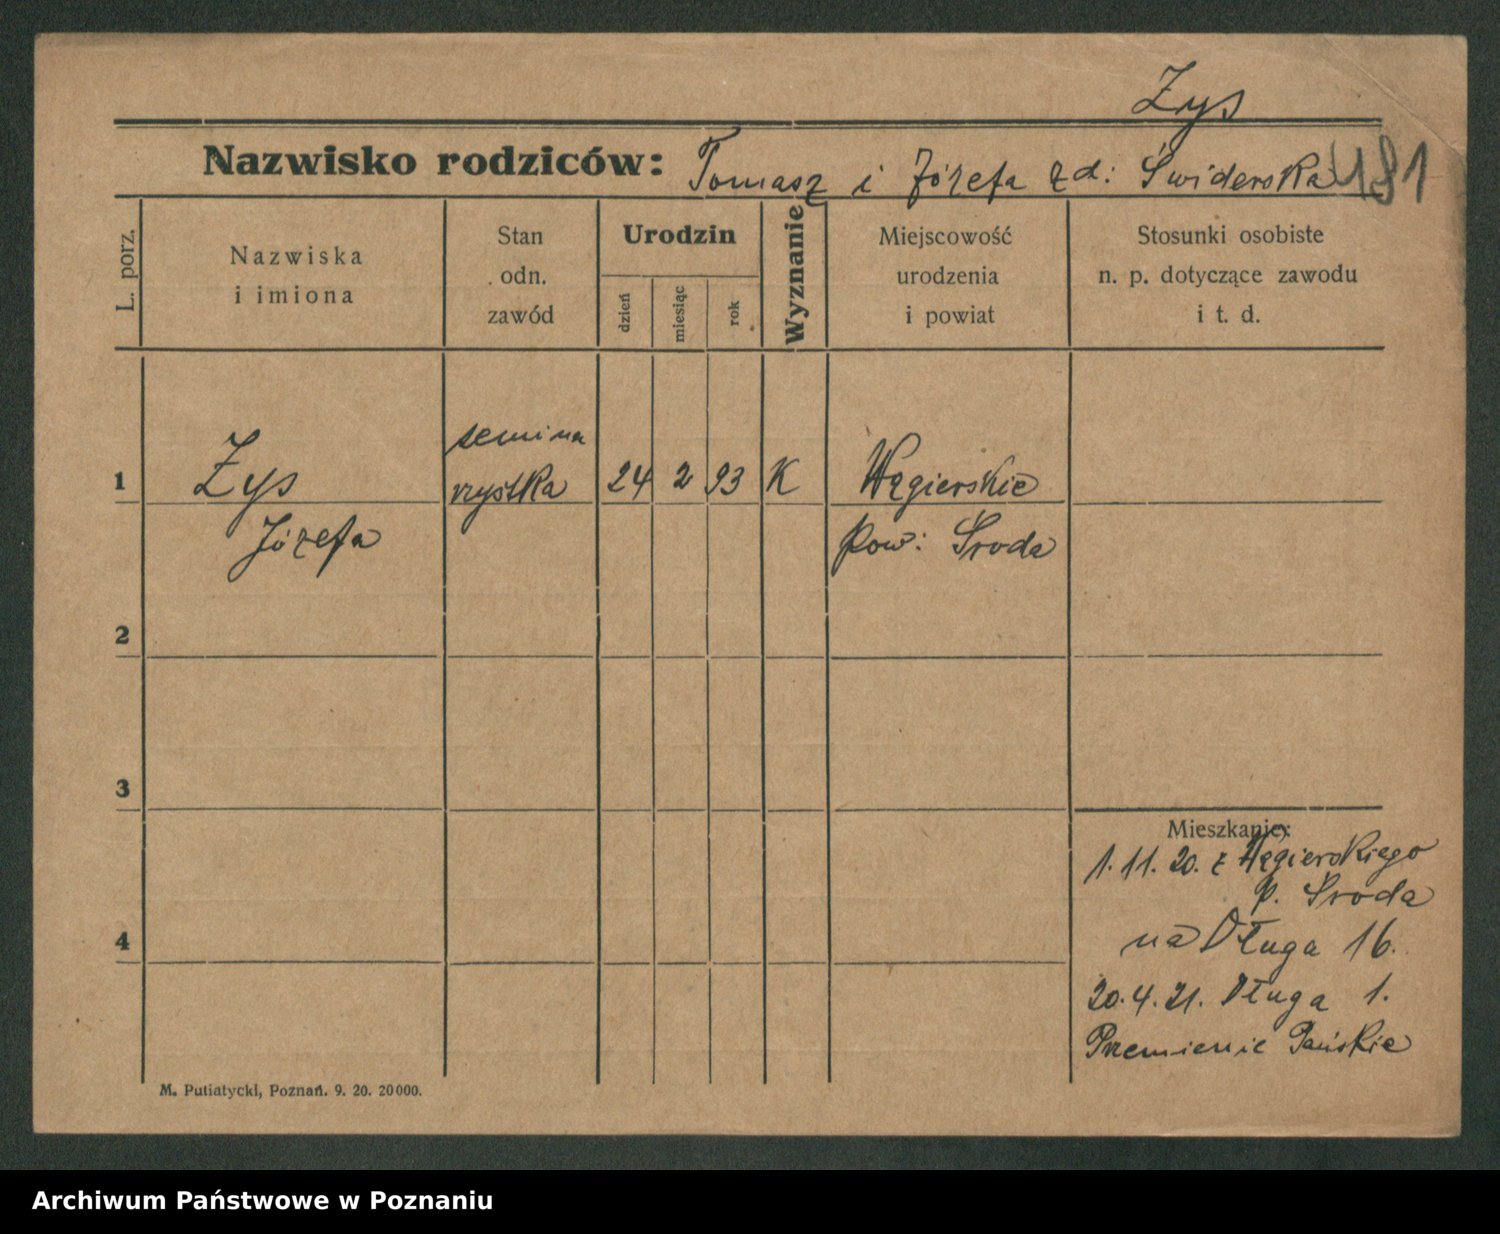 Zys
Nazwisko rodziców: Tomasz i Józefa zd: Świderska 181
L. porz.
Nazwiska
i imiona
Stan
odn.
zawód
Urodzin
dzień
miesiąc
rok
Wyznanie
Miejscowość
urodzenia
i powiat
Stosunki osobiste
n. p. dotyczące zawodu
i t. d.
semina
1 Zys rzystka 24 2 93 K Węgierskie
Józefa pow: Środa
2
3
Mieszkanie:
1.11.20. z Węgierskiego
p. Środa
4
na Długa 16.
20.4.21. Długa 1.
Przemienie Pańskie
M. Putiatycki, Poznań. 9. 20. 20000.
Archiwum Państwowe w Poznaniu